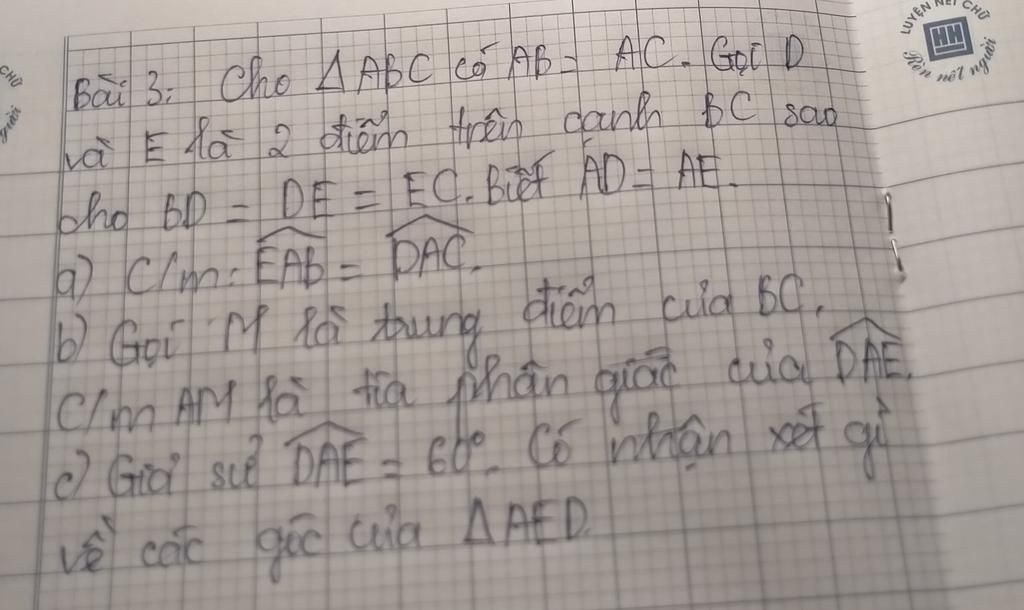 Bài 3: Cho Δ ABC có AB = AC. Gọi D
và E là 2 điểm trên cạnh BC sao
cho BD = DE = EC. Biết AD = AE.
a) C/m: EAB = DAC.
b) Gọi M là trung điểm của BC.
C/m AM là tia phân giác của DAE.
c) Giả sử DAE = 60°. Có nhận xét gì
về các góc của Δ AED.
LUYỆN NÉT CHỮ
HH
Rèn nết người
CHỮ
người